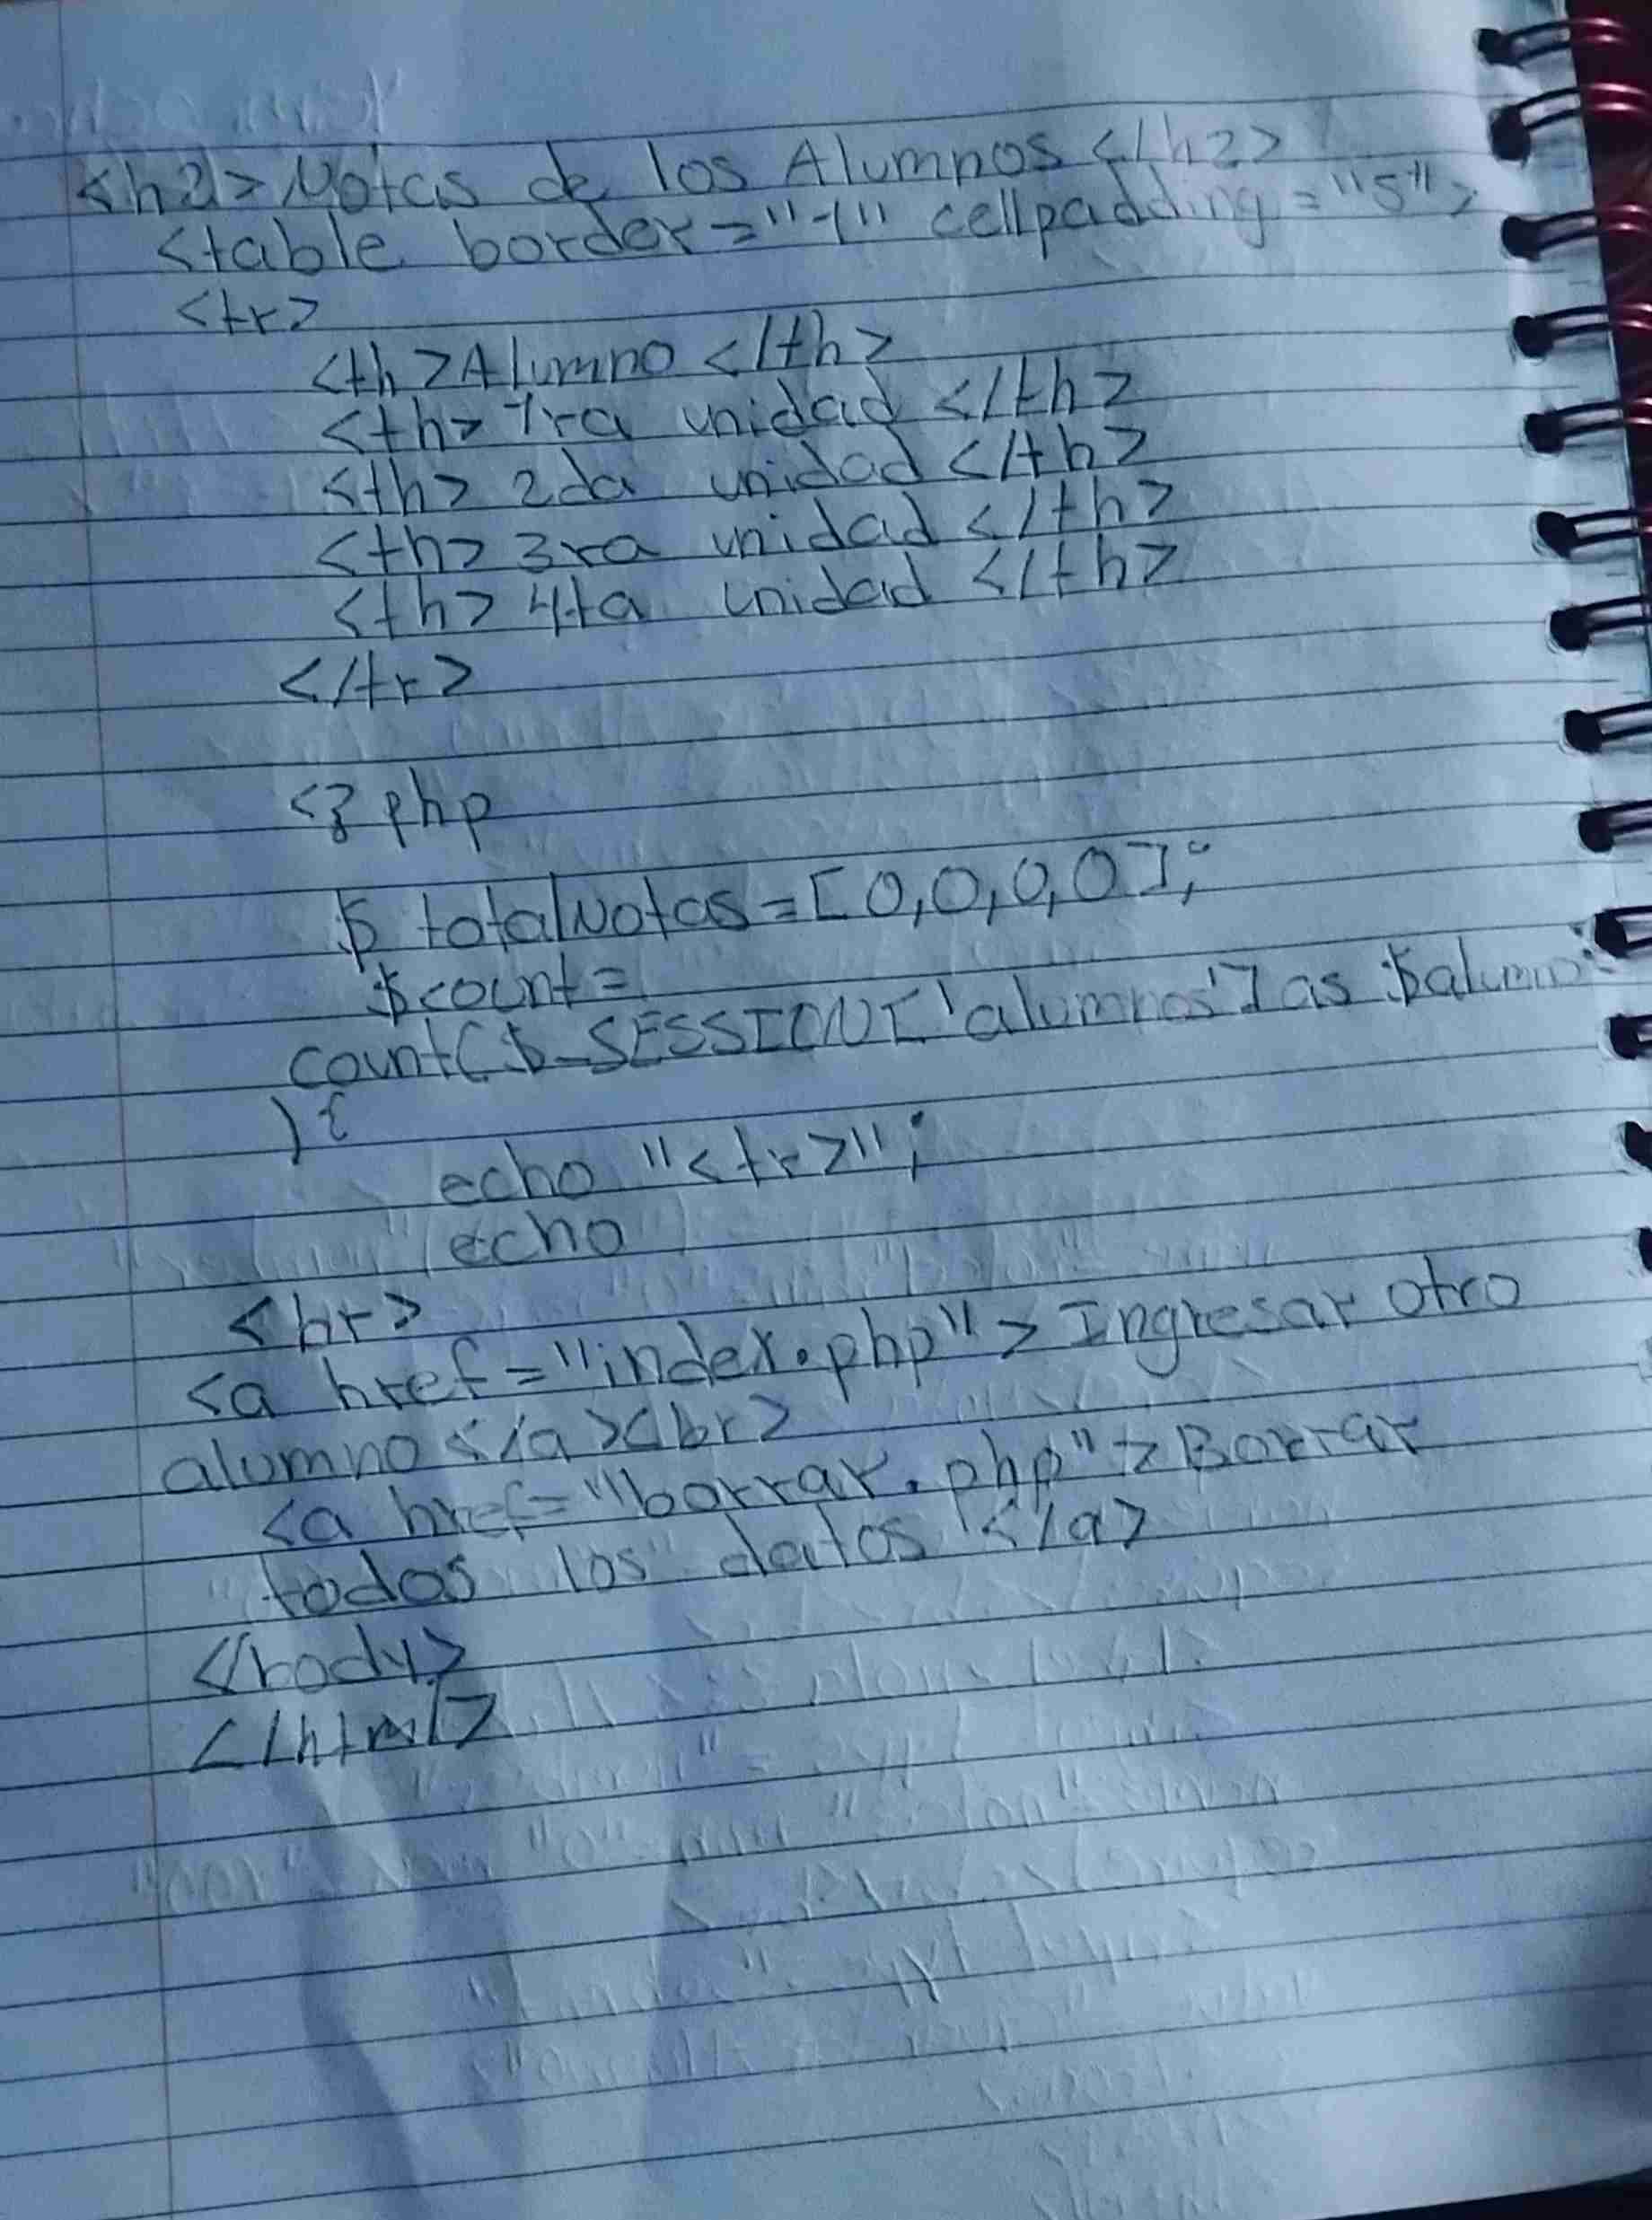 <h2> Notas de los Alumnos </h2>
<table border="1" cellpadding="5">
<tr>
<th>Alumno </th>
<th> 1ra unidad </th>
<th> 2da unidad </th>
<th> 3ra unidad </th>
<th> 4ta unidad </th>
</tr>
<? php
$ totalNotas=[0,0,0,0];
$count=
count($_SESSION['alumnos'] as $alumno
){
echo "<tr>";
echo
<br>
<a href="index.php"> Ingresar otro
alumno </a><br>
<a href="borrar.php">Borrar
todos los datos </a>
</body>
</html>